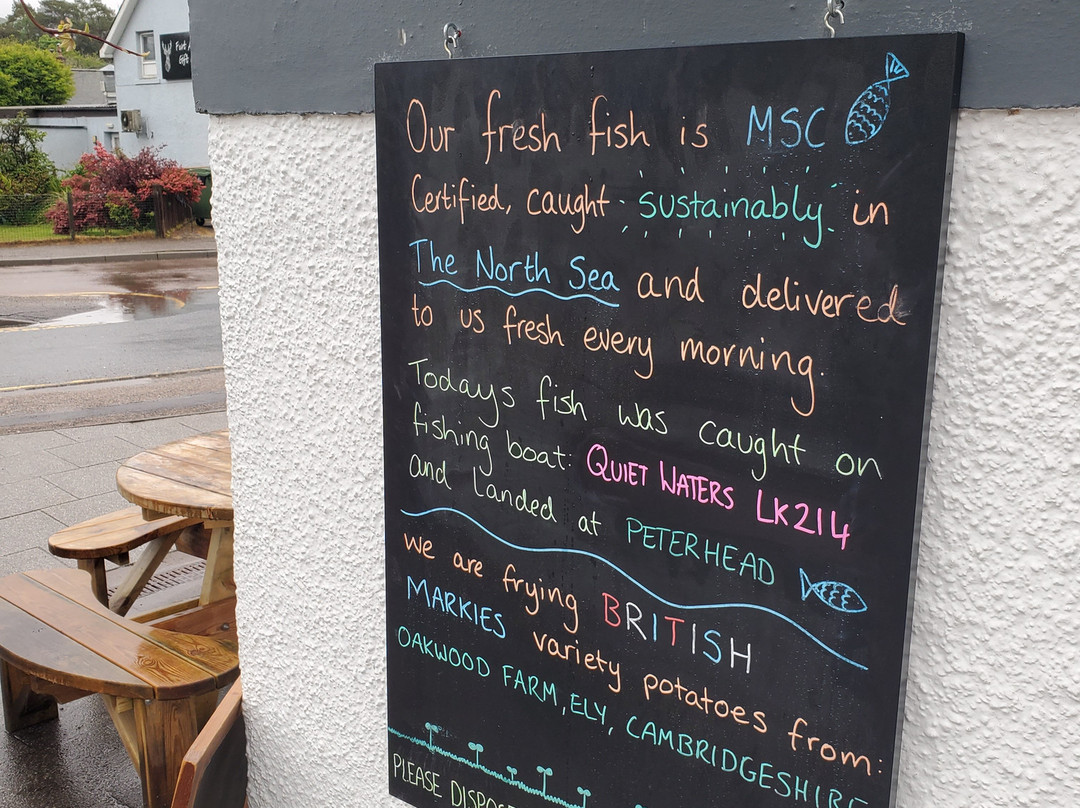 Fort
Gift
Our fresh fish is MSC
Certified, caught sustainably in
The North Sea and delivered
to us fresh every morning.
Todays fish was caught on
fishing boat: QUIET WATERS LK214
and landed at PETERHEAD
we are frying BRITISH
MARKIES variety potatoes from:
OAKWOOD FARM, ELY, CAMBRIDGESHIRE
PLEASE DISPOSE